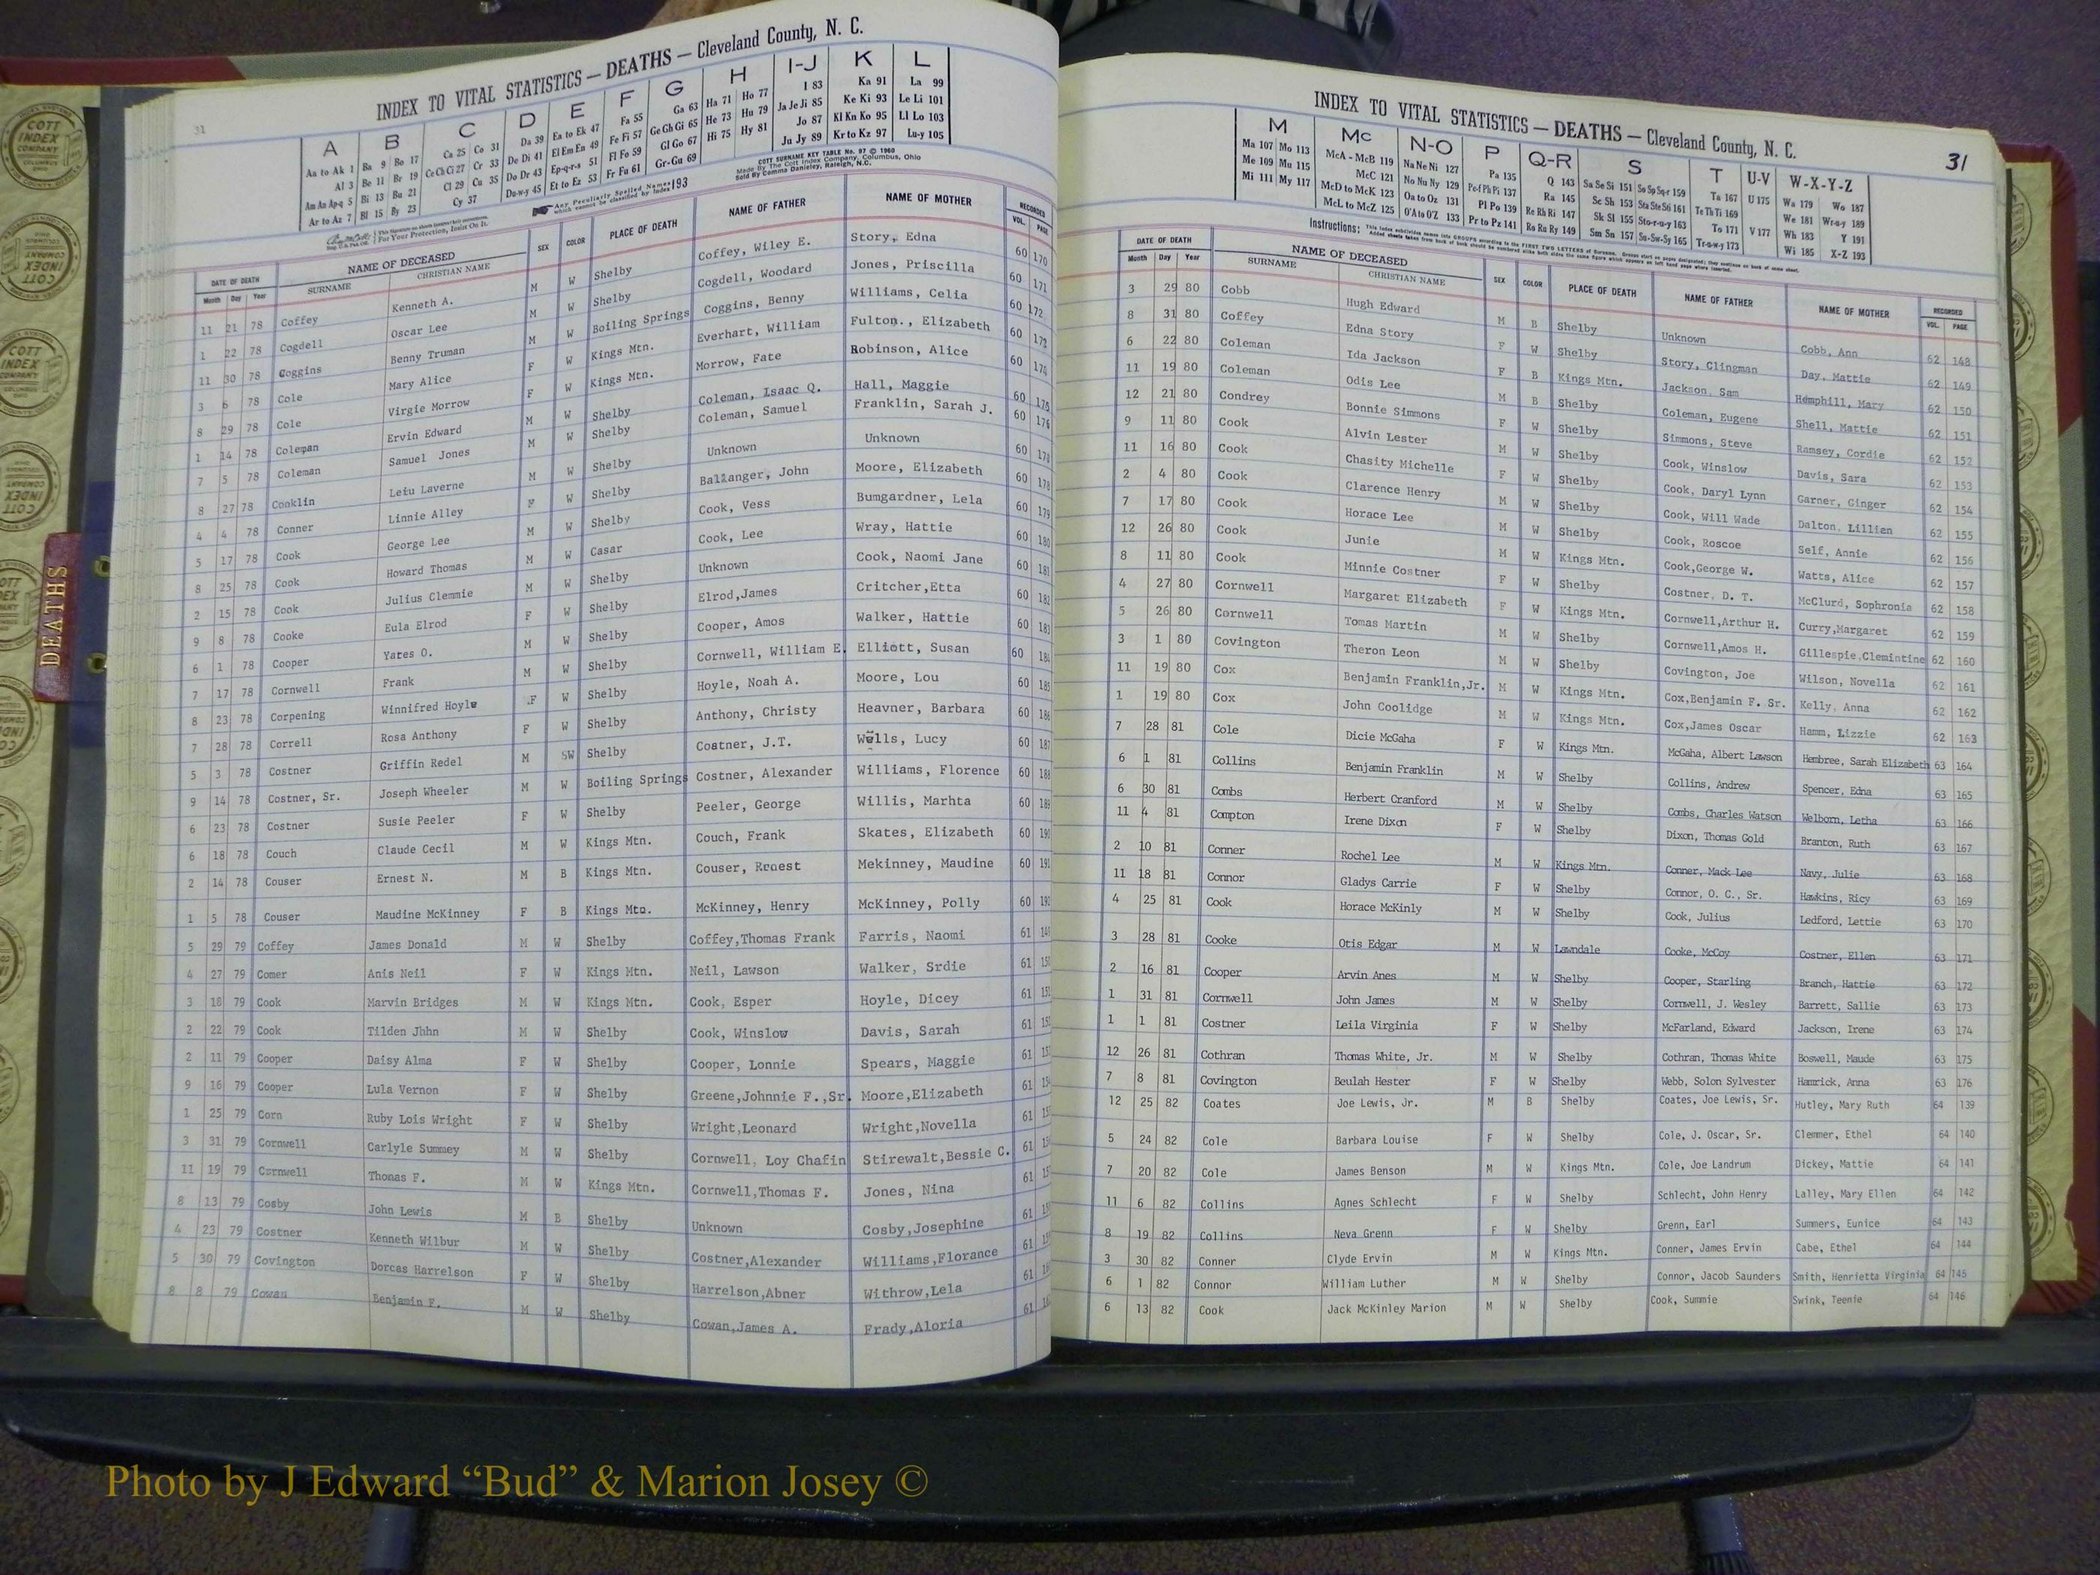 31
INDEX TO VITAL STATISTICS — DEATHS — Cleveland County, N. C.
A B C D E F G H I-J K L
Aa to Ak 1 Ba 9 Bo 17 Ca 25 Co 31 Da 39 Ea to Ek 47 Fa 55 Ga 63 Ha 71 Ho 77 I 83 Ka 91 La 99
Al 3 Be 11 Br 19 Ce Ch Ci 27 Cr 33 De Di 41 El Em En 49 Fe Fi 57 Ge Gh Gi 65 He 73 Hu 79 Ja Je Ji 85 Ke Ki 93 Le Li 101
Am An Ap-q 5 Bi 13 Bu 21 Cl 29 Cu 35 Do Dr 43 Ep-q-r-s 51 Fl Fo 59 Gl Go 67 Hi 75 Hy 81 Jo 87 Kl Kn Ko 95 Ll Lo 103
Ar to Az 7 Bl 15 By 23 Cy 37 Du-w-y 45 Et to Ez 53 Fr Fu 61 Gr-Gu 69 Ju Jy 89 Kr to Kz 97 Lu-y 105
COTT SURNAME KEY TABLE No. 97 © 1960
Made By The Cott Index Company, Columbus, Ohio
Sold By Comma Danieley, Raleigh, N.C.
Any Peculiarly Spelled Names which cannot be classified by Index 193
For Your Protection, Insist On It.
DATE OF DEATH NAME OF DECEASED SEX COLOR PLACE OF DEATH NAME OF FATHER NAME OF MOTHER RECORDED
Month Day Year SURNAME CHRISTIAN NAME VOL. PAGE
11 21 78 Coffey Kenneth A. M W Shelby Coffey, Wiley E. Story, Edna 60 170
1 22 78 Cogdell Oscar Lee M W Shelby Cogdell, Woodard Jones, Priscilla 60 171
11 30 78 Coggins Benny Truman M W Boiling Springs Coggins, Benny Williams, Celia 60 172
3 6 78 Cole Mary Alice F W Kings Mtn. Everhart, William Fulton., Elizabeth 60 173
8 29 78 Cole Virgie Morrow F W Kings Mtn. Morrow, Fate Robinson, Alice 60 174
1 14 78 Coleman Ervin Edward M W Shelby Coleman, Isaac Q. Hall, Maggie 60 175
7 5 78 Coleman Samuel Jones M W Shelby Coleman, Samuel Franklin, Sarah J. 60 176
8 27 78 Conklin Leiu Laverne M W Shelby Unknown Unknown 60
4 4 78 Conner Linnie Alley F W Shelby Ballanger, John Moore, Elizabeth 60 178
5 17 78 Cook George Lee M W Shelby Cook, Vess Bumgardner, Lela 60 179
8 25 78 Cook Howard Thomas M W Casar Cook, Lee Wray, Hattie 60 180
2 15 78 Cook Julius Clemmie M W Shelby Unknown Cook, Naomi Jane 60 181
9 8 78 Cooke Eula Elrod F W Shelby Elrod,James Critcher,Etta 60 182
6 1 78 Cooper Yates O. M W Shelby Cooper, Amos Walker, Hattie 60 183
7 17 78 Cornwell Frank M W Shelby Cornwell, William E. Elliott, Susan 60 184
8 23 78 Corpening Winnifred Hoyle F W Shelby Hoyle, Noah A. Moore, Lou 60 185
7 28 78 Correll Rosa Anthony F W Shelby Anthony, Christy Heavner, Barbara 60 186
5 3 78 Costner Griffin Redel M SW Shelby Costner, J.T. Wells, Lucy 60 187
9 14 78 Costner, Sr. Joseph Wheeler M W Boiling Springs Costner, Alexander Williams, Florence 60 188
6 23 78 Costner Susie Peeler F W Shelby Peeler, George Willis, Marhta 60 189
6 18 78 Couch Claude Cecil M W Kings Mtn. Couch, Frank Skates, Elizabeth 60 190
2 14 78 Couser Ernest N. M B Kings Mtn. Couser, Renest Mekinney, Maudine 60 191
1 5 78 Couser Maudine McKinney F B Kings Mtn. McKinney, Henry McKinney, Polly 60 192
5 29 79 Coffey James Donald M W Shelby Coffey,Thomas Frank Farris, Naomi 61 149
4 27 79 Comer Anis Neil F W Kings Mtn. Neil, Lawson Walker, Srdie 61 150
3 18 79 Cook Marvin Bridges M W Kings Mtn. Cook, Esper Hoyle, Dicey 61
2 22 79 Cook Tilden Jhhn M W Shelby Cook, Winslow Davis, Sarah 61
2 11 79 Cooper Daisy Alma F W Shelby Cooper, Lonnie Spears, Maggie 61
9 16 79 Cooper Lula Vernon F W Shelby Greene,Johnnie F.,Sr. Moore,Elizabeth 61
1 25 79 Corn Ruby Lois Wright F W Shelby Wright,Leonard Wright,Novella 61
3 31 79 Cornwell Carlyle Summey M W Shelby Cornwell, Loy Chafin Stirewalt,Bessie C. 61
11 19 79 Cornwell Thomas F. M W Kings Mtn. Cornwell,Thomas F. Jones, Nina 61
8 13 79 Cosby John Lewis M B Shelby Unknown Cosby,Josephine 61
4 23 79 Costner Kenneth Wilbur M W Shelby Costner,Alexander Williams,Florance 61
5 30 79 Covington Dorcas Harrelson F W Shelby Harrelson,Abner Withrow,Lela 61
8 8 79 Cowan Benjamin F. M W Shelby Cowan,James A. Frady,Aloria 61
INDEX TO VITAL STATISTICS — DEATHS — Cleveland County, N. C.
31
M Mc N-O P Q-R S T U-V W-X-Y-Z
Ma 107 Mo 113 McA - McB 119 Na Ne Ni 127 Pa 135 Q 143 Sa Se Si 151 So Sp Sq-r 159 Ta 167 U 175 Wa 179 Wo 187
Me 109 Mu 115 McC 121 No Nu Ny 129 Pe-f Ph Pi 137 Ra 145 Sc Sh 153 Sta Ste Sti 161 Te Th Ti 169 V 177 We 181 Wr-u-y 189
Mi 111 My 117 McD to McK 123 Oa to Oz 131 Pl Po 139 Re Rh Ri 147 Sk Sl 155 Sto-r-u-y 163 To 171 Wh 183 Y 191
McL to McZ 125 O'A to O'Z 133 Pr to Pz 141 Ro Ru Ry 149 Sm Sn 157 Su-Sw-Sy 165 Tr-u-w-y 173 Wi 185 X-Z 193
Instructions: This index subdivides names into GROUPS according to the FIRST TWO LETTERS of Surname.
DATE OF DEATH NAME OF DECEASED SEX COLOR PLACE OF DEATH NAME OF FATHER NAME OF MOTHER RECORDED
Month Day Year SURNAME CHRISTIAN NAME VOL. PAGE
3 29 80 Cobb Hugh Edward M B Shelby Unknown Cobb, Ann 62 148
8 31 80 Coffey Edna Story F W Shelby Story, Clingman Day, Mattie 62 149
6 22 80 Coleman Ida Jackson F B Kings Mtn. Jackson, Sam Hemphill, Mary 62 150
11 19 80 Coleman Odis Lee M B Shelby Coleman, Eugene Shell, Mattie 62 151
12 21 80 Condrey Bonnie Simmons F W Shelby Simmons, Steve Ramsey, Cordie 62 152
9 11 80 Cook Alvin Lester M W Shelby Cook, Winslow Davis, Sara 62 153
11 16 80 Cook Chasity Michelle F W Shelby Cook, Daryl Lynn Garner, Ginger 62 154
2 4 80 Cook Clarence Henry M W Shelby Cook, Will Wade Dalton, Lillien 62 155
7 17 80 Cook Horace Lee M W Shelby Cook, Roscoe Self, Annie 62 156
12 26 80 Cook Junie M W Kings Mtn. Cook,George W. Watts, Alice 62 157
8 11 80 Cook Minnie Costner F W Shelby Costner, D. T. McClurd, Sophronia 62 158
4 27 80 Cornwell Margaret Elizabeth F W Kings Mtn. Cornwell,Arthur H. Curry,Margaret 62 159
5 26 80 Cornwell Tomas Martin M W Shelby Cornwell,Amos H. Gillespie,Clemintine 62 160
3 1 80 Covington Theron Leon M W Shelby Covington, Joe Wilson, Novella 62 161
11 19 80 Cox Benjamin Franklin,Jr. M W Kings Mtn. Cox,Benjamin F. Sr. Kelly, Anna 62 162
1 19 80 Cox John Coolidge M W Kings Mtn. Cox,James Oscar Hamm, Lizzie 62 163
7 28 81 Cole Dicie McGaha F W Kings Mtn. McGaha, Albert Lawson Hembree, Sarah Elizabeth 63 164
6 1 81 Collins Benjamin Franklin M W Shelby Collins, Andrew Spencer, Edna 63 165
6 30 81 Combs Herbert Cranford M W Shelby Combs, Charles Watson Welborn, Letha 63 166
11 4 81 Compton Irene Dixon F W Shelby Dixon, Thomas Gold Branton, Ruth 63 167
2 10 81 Conner Rochel Lee M W Kings Mtn. Conner, Mack Lee Navy, Julie 63 168
11 18 81 Connor Gladys Carrie F W Shelby Connor, O. C., Sr. Hawkins, Ricy 63 169
4 25 81 Cook Horace McKinly M W Shelby Cook, Julius Ledford, Lettie 63 170
3 28 81 Cooke Otis Edgar M W Lawndale Cooke, McCoy Costner, Ellen 63 171
2 16 81 Cooper Arvin Anes M W Shelby Cooper, Starling Branch, Hattie 63 172
1 31 81 Cornwell John James M W Shelby Cornwell, J. Wesley Barrett, Sallie 63 173
1 1 81 Costner Leila Virginia F W Shelby McFarland, Edward Jackson, Irene 63 174
12 26 81 Cothran Thomas White, Jr. M W Shelby Cothran, Thomas White Boswell, Maude 63 175
7 8 81 Covington Beulah Hester F W Shelby Webb, Solon Sylvester Hamrick, Anna 63 176
12 25 82 Coates Joe Lewis, Jr. M B Shelby Coates, Joe Lewis, Sr. Hutley, Mary Ruth 64 139
5 24 82 Cole Barbara Louise F W Shelby Cole, J. Oscar, Sr. Clemmer, Ethel 64 140
7 20 82 Cole James Benson M W Kings Mtn. Cole, Joe Landrum Dickey, Mattie 64 141
11 6 82 Collins Agnes Schlecht F W Shelby Schlecht, John Henry Lalley, Mary Ellen 64 142
8 19 82 Collins Neva Grenn F W Shelby Grenn, Earl Summers, Eunice 64 143
3 30 82 Conner Clyde Ervin M W Kings Mtn. Conner, James Ervin Cabe, Ethel 64 144
6 1 82 Connor William Luther M W Shelby Connor, Jacob Saunders Smith, Henrietta Virginia 64 145
6 13 82 Cook Jack McKinley Marion M W Shelby Cook, Summie Swink, Teenie 64 146
DEATHS
COTT INDEX COMPANY
Photo by J Edward “Bud” & Marion Josey ©